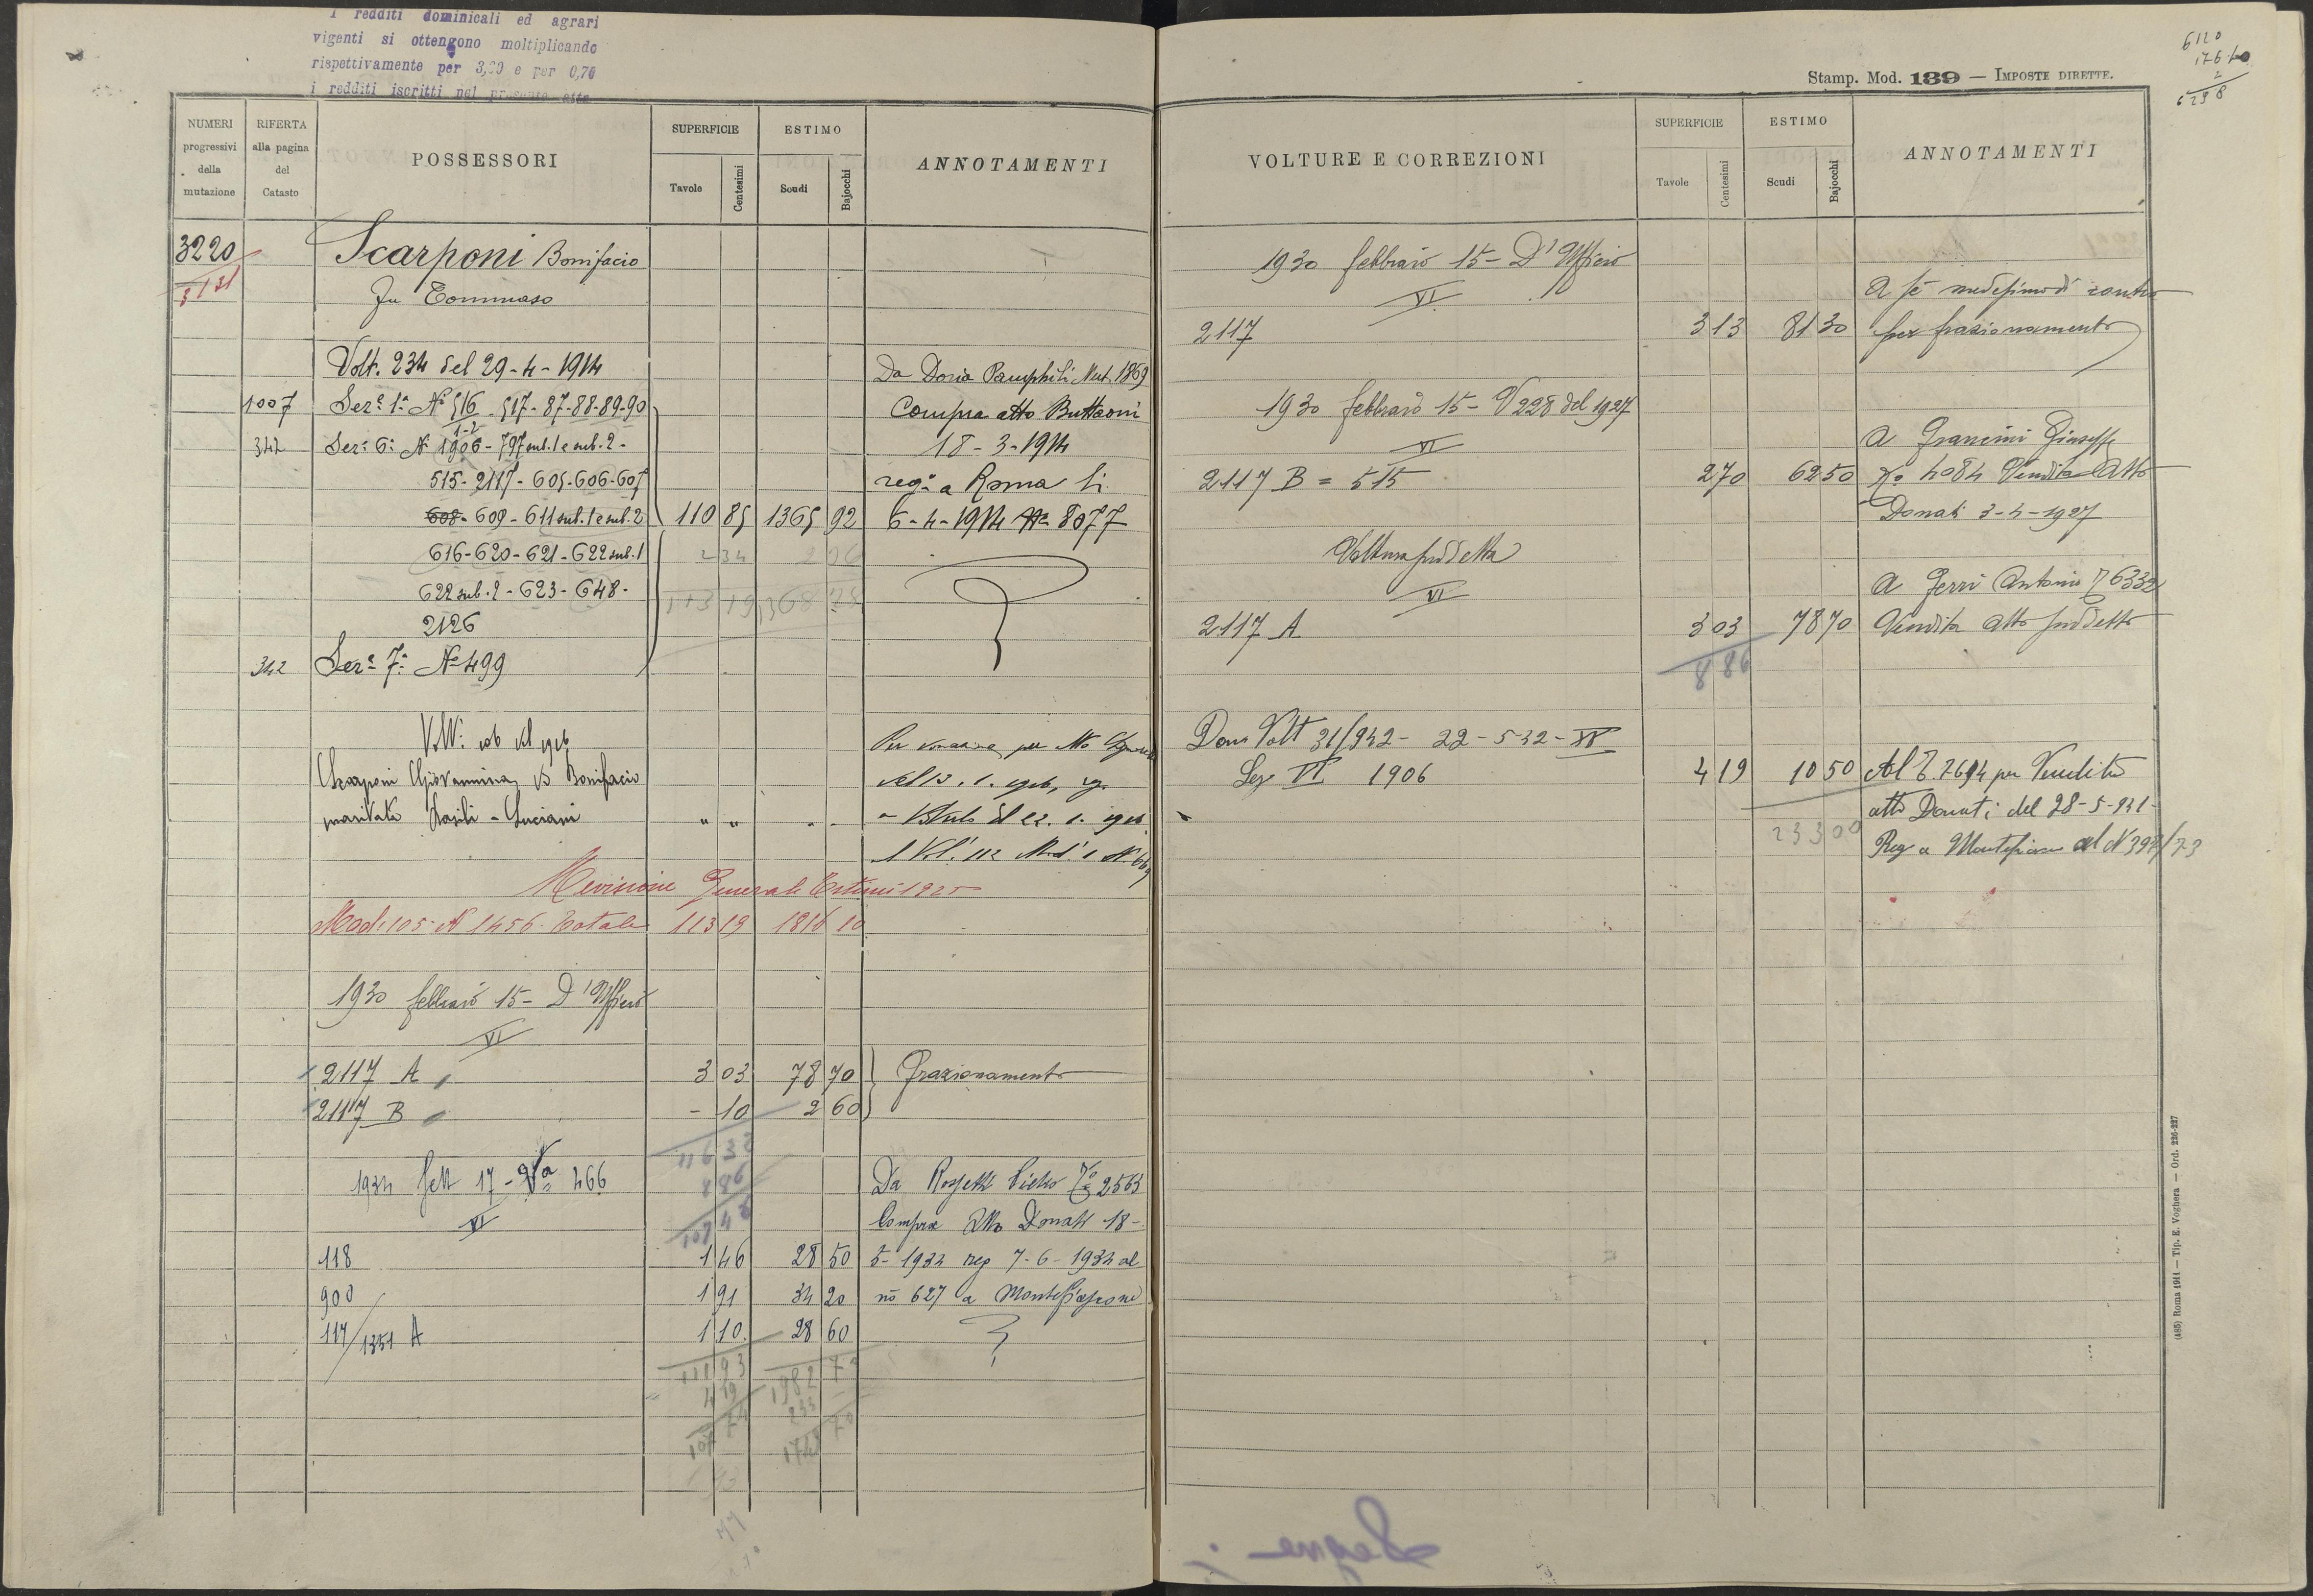 I redditi dominicali ed agrari
vigenti si ottengono moltiplicando
rispettivamente per 3,20 e per 0,70
i redditi iscritti nel presente atto
NUMERI progressivi della mutazione
RIFERTA alla pagina del Catasto
POSSESSORI
SUPERFICIE
Tavole
Centesimi
ESTIMO
Scudi
Bajocchi
ANNOTAMENTI
3220
3131
Scarponi Bonifacio
fu Tommaso
Volt. 234 del 29-4-1914
Da Doria Pamphili Nut. 1869
1007 Sez.e 1.a No 516 - 517-87-88-89-90
Compra atto Buttaoni
1-2
342 Sez.e 6.a No 1906-797 sub.1 e sub.2-
18-3-1914
515-2117-605-606-607
reg.o a Roma li
608-609-611 sub.1 e sub.2 110 85 1365 92
6-4-1914 No 8077
616-620-621-622 sub.1 2 34
622 sub.2-623-648- 113 19 1368
2126
342 Sez.e 7.a No 499
Scarponi Giovannina di Bonifacio
maritata Basili - Luciani
Revisione Generale Estimi 1925
Mod. 105-N 1456- Totale 113 19 1816 10
1930 febbraio 15- D'Ufficio
VI
2117 A 3 03 78 70 Frazionamento
2117 B - 10 2 60
116 32
8 86
107 46
1934 17 - Va 466
Da Rossetti Pietro 2563
VI
Compra Atto Donati 18-
118 1 46 28 50 5-1934 reg 7-6-1934 al
900 1 91 34 20 no 627 a Montefiascone
117/1351 A 1 10 28 60
111 93 1982 70
4 19 233
107 74 1749 70
Stamp. Mod. 139 — IMPOSTE DIRETTE.
6120
176.60
2
6298
VOLTURE E CORREZIONI
SUPERFICIE
Tavole
Centesimi
ESTIMO
Scudi
Bajocchi
ANNOTAMENTI
1930 febbraio 15- D'Ufficio
VI
A se medesimo di contro
2117 3 13 81 30 per frazionamento
1930 febbraio 15- V 228 del 1927
VI
A Francini Giuseppe
2117 B = 515 2 70 62 50 4084 Vendita Atto
Donati 3-4-1927
Voltura suddetta
VI
A Ferri Antonio 6332
2117 A 3 03 78 70 Vendita atto suddetto
8 86
Dom Volt 31/942- 22-5-32-XX
Sez VI 1906 4 19 10 50 Al 7694 per Vendita
233 00 atto Donati del 28-5-931
Reg a Montefiascone al N 397/73
(485) Roma 1911 — Tip. E. Voghera — Ord. 226-227
Segue